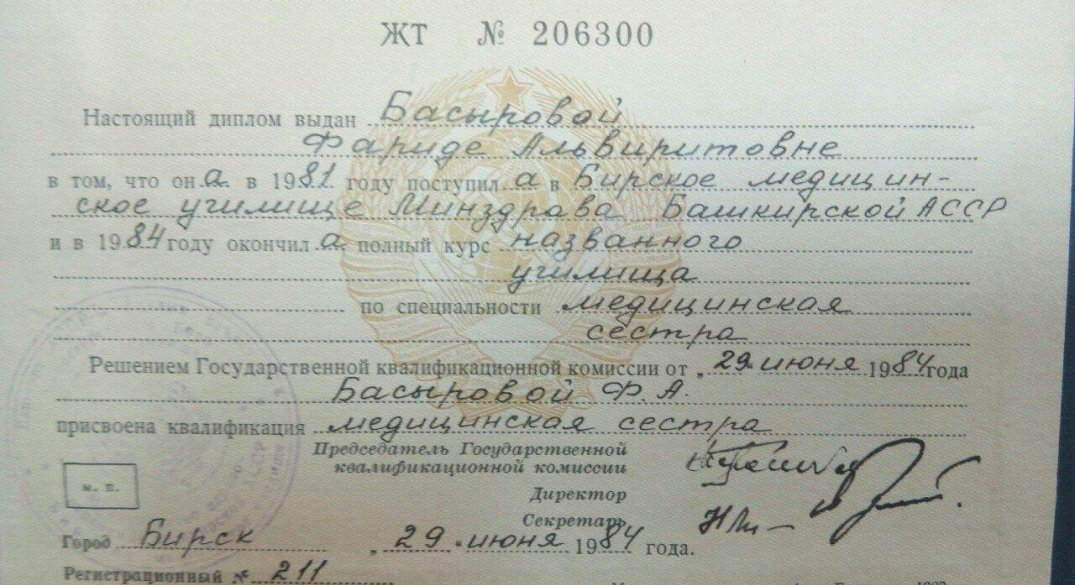 ЖТ № 206300
Настоящий диплом выдан Басыровой
Фариде Альвиритовне
в том, что он а в 1981 году поступил а в Бирское медицин-
ское училище Минздрава Башкирской АССР
и в 1984 году окончил а полный курс названного
училища
по специальности медицинская
сестра
Решением Государственной квалификационной комиссии от „29" июня 1984 года
Басыровой Ф. А.
присвоена квалификация медицинская сестра
Председатель Государственной
квалификационной комиссии
Директор
Секретарь
м. п.
Город Бирск „29" июня 1984 года.
Регистрационный № 211